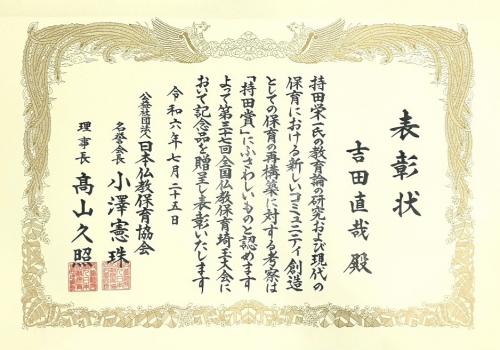 表彰状
吉田直哉 殿
持田栄一氏の教育論の研究および現代の
保育における新しいコミュニティ創造
としての保育の再構築に対する考察は
「持田賞」にふさわしいものと認めます
よって第三十七回全国仏教保育埼玉大会に
おいて記念品を贈呈し表彰いたします
令和六年七月二十五日
公益社団法人日本仏教保育協会
名誉会長 小澤憲珠
理事長 髙山久照